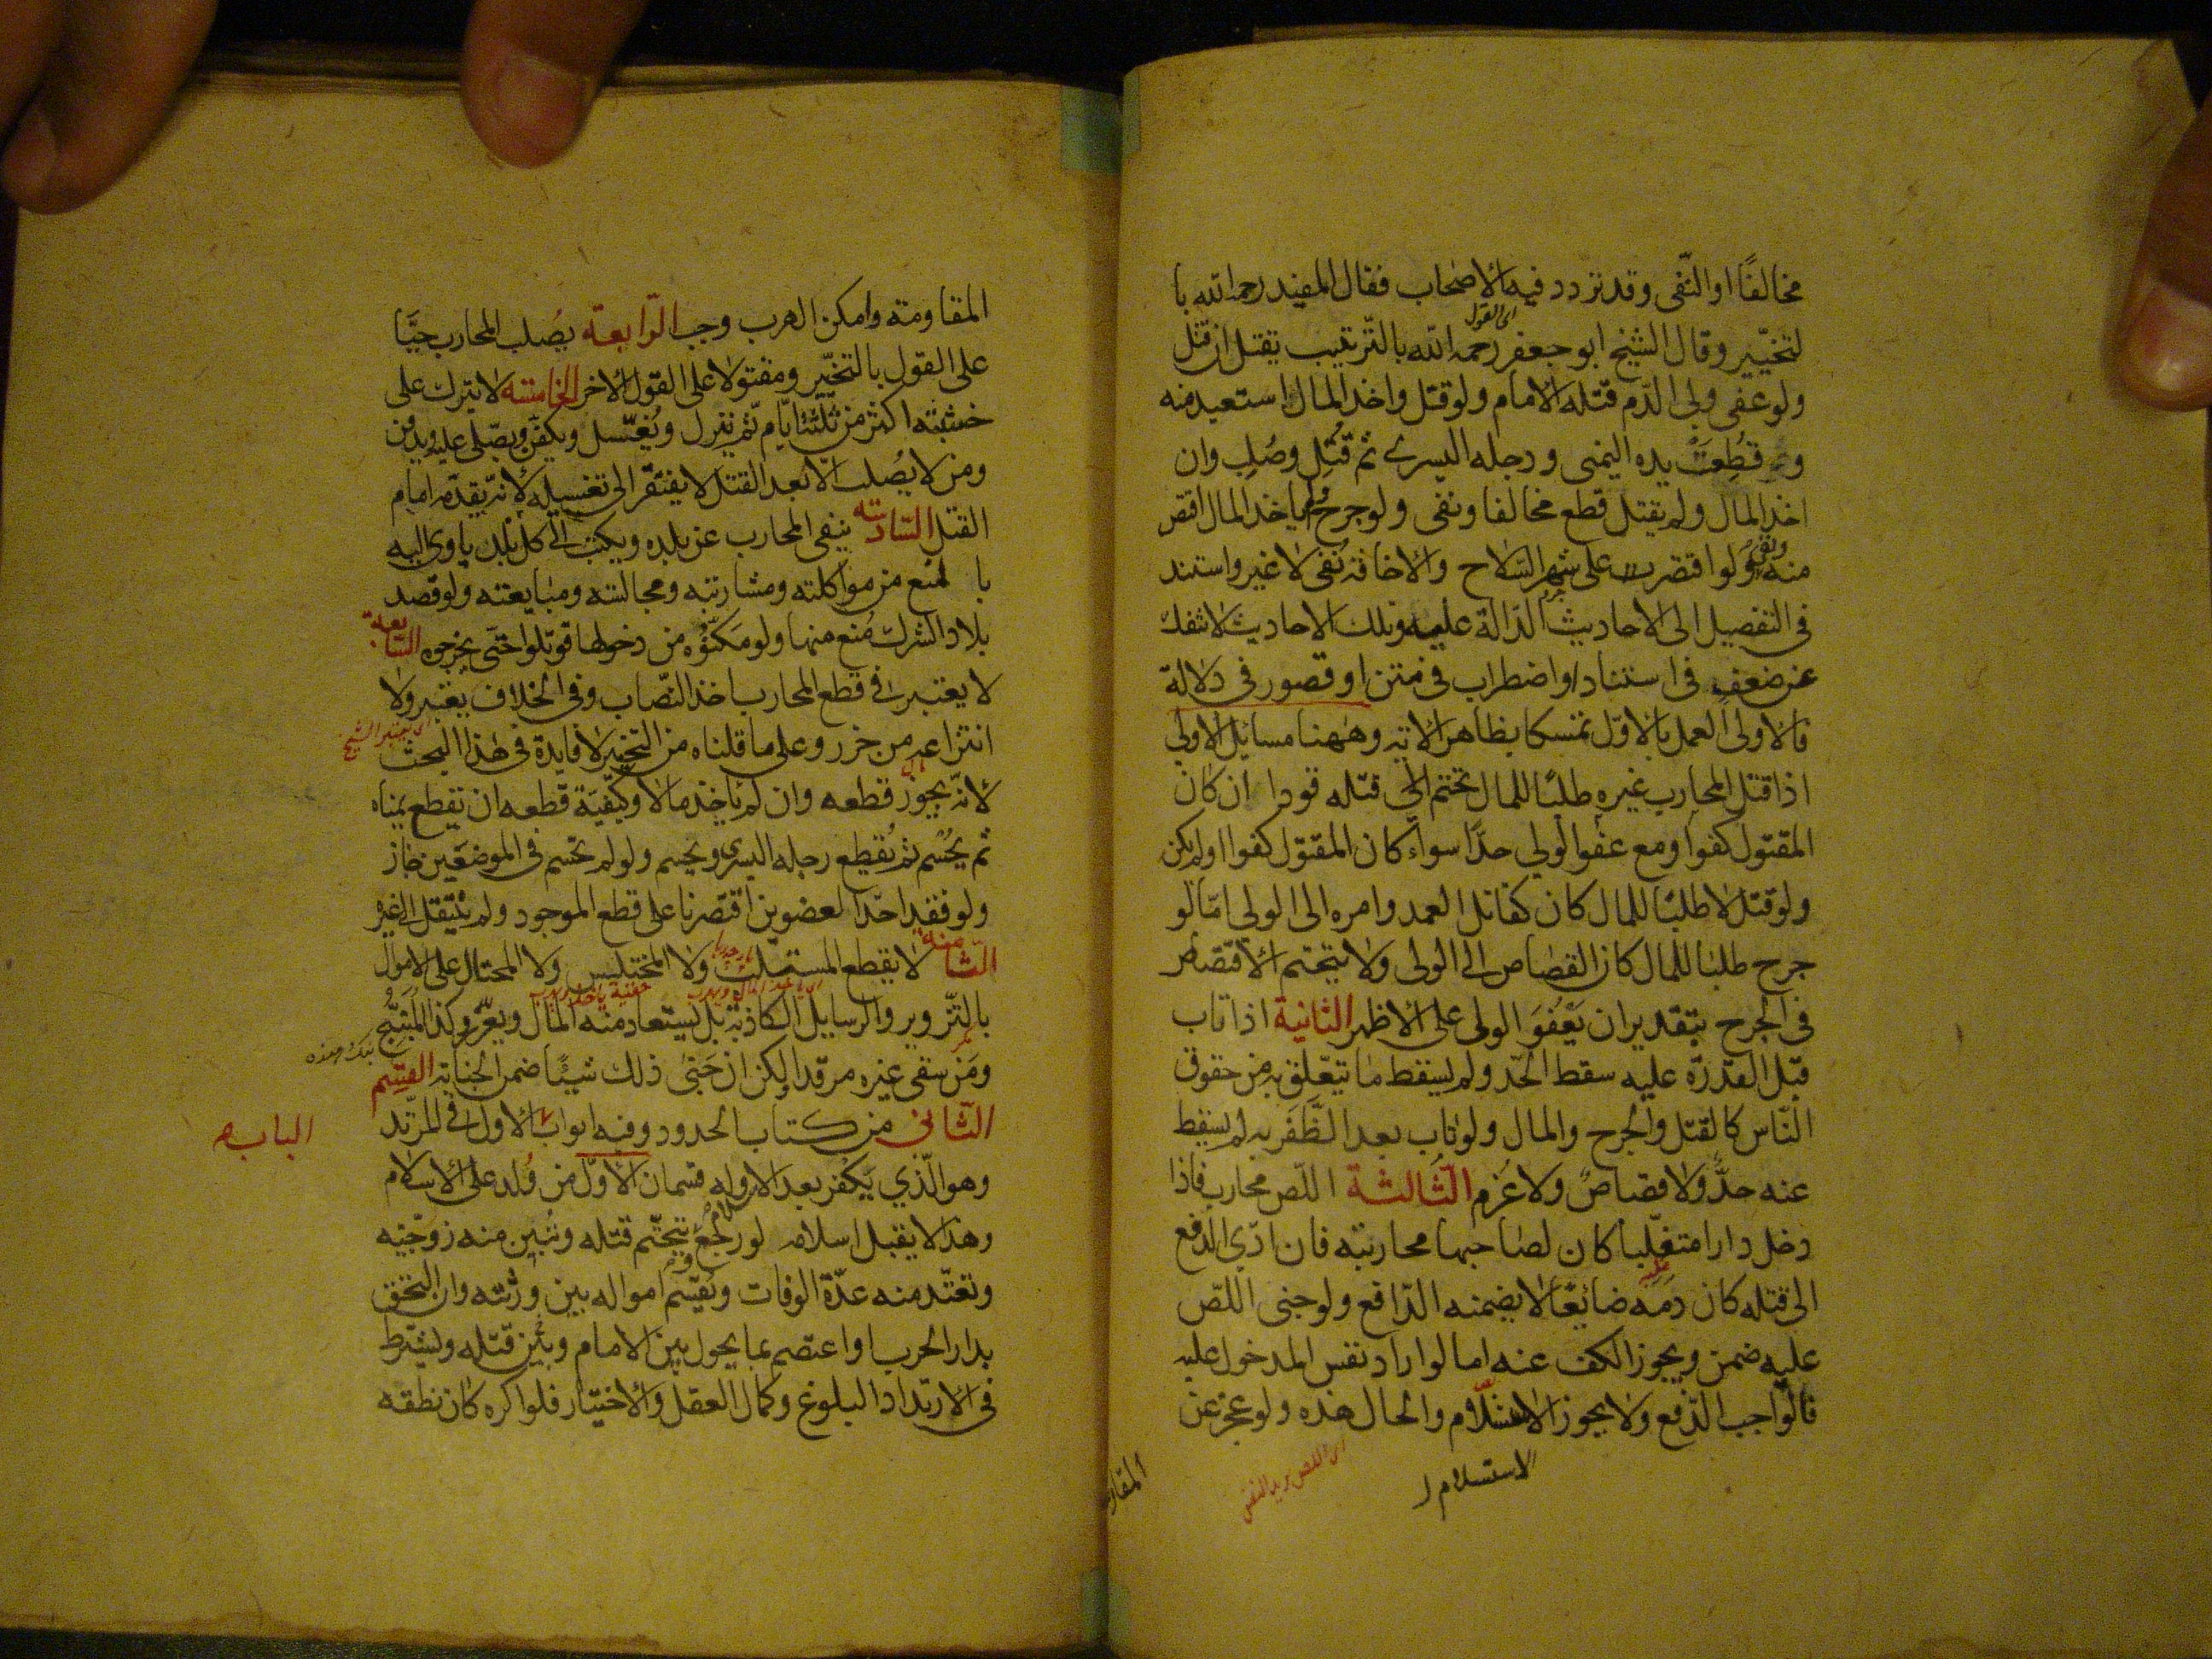 مخالفًا او النّفى وقد تردد فيه الاصحاب فقال المفيد رحمه الله با
اى القول
لتخيّير وقال الشيخ ابو جعفر رحمه الله بالتّرتيب يقتل ان قتل
ولو عفى ولى الدّم قتله الامام ولو قتل واخذ المال استعيد منه
و قُطِعَتْ يده اليمنى ورجله اليسرى ثم قُتِل وصُلِب وان
اخذ المال ولم يقتل قطع مخالفا ونفى ولو جرح ولم ياخذ المال اقتص
منه ونفى ولو اقتصر على شهر السّلاح والاخافة نُفى لا غير واستند
فى التفصيل الى الاحاديث الدّالة عليه وتلك الاحاديث لا تنفك
عن ضعف فى استناد او اضطراب فى متن او قصور فى دلالة
فالاولى العمل بالاوّل تمسكا بظاهر الاية وههنا مسائل الاولى
اذا قتل المحارب غيره طلبًا للمال تحتم الى قتله قودا ان كان
المقتول كفوا ومع عفو الولي حدًا سواء كان المقتول كفوا اولم يكن
ولو قتل لا طلبًا للمال كان كقاتل العمد وامره الى الولى امّا لو
جرح طلبا للمال كان القصاص الى الولى ولا يتحتم الاقتصاص
فى الجرح بتقدير ان يَعْفُوَ الولى على الاظهر الثانية اذا تاب
قبل القدرة عليه سقط الحّد ولم يسقط ما يتعّلق به من حقوق
النّاس كالقتل والجرح والمال ولو تاب بعد الظَّفَر به لم يسقط
عنه حدٌّ ولا قصاصٌ ولا غُرم الثّالثة اللّص محارب فاذا
دخل دارا متغلّبا كان لصاحبها محاربته فان ادّى الدّفع
الى قتله كان دَمَه ضائعًا لا يضمنه الدّافع ولو جنى اللّص
عليه
عليه ضمن ويجوز الكف عنه اما لو اراد نفس المدخول عليه
فالواجب الدّفع ولا يجوز الاستسلام والحال هذه ولو عجز عن
الاستسلام
اى اللص يريد النفس
المقاو
المقاومته وامكن الهرب وجب الرّابعة يصُلب المحارب حيَّا
على القول بالتخيّير ومقتولا على القول الاخر الخامسة لا يترك على
خشبته اكثر من ثلثة ايّام ثم ينزل ويُغّسل ويكفّن ويصّلى عليه ويدفن
ومن لا يصُلب الّا بعد القتل لا يفتقر الى تغسيله لانّه يقدّم امام
القتل السّادسة ينفى المحارب عن بلده ويكتب الى كل بلد ياوى اليه
با لمنع من مواكلته ومشاربته ومجالسته ومبايعته ولو قصد
بلاد الشرك مُنع منها ولو مكّنوُه من دخولها قوتلوا حتى يخرجوه السّابعة
لا يعتبر فى قطع المحارب اخذ النّصاب وفى الخلاف يعتبر ولا
انتزاعه من حرز وعلى ما قلناه من التخيير لا فايدة فى هذا البحث
لانّه يجوز قطعه وان لم ياخذ مالا وكيفيّة قطعه ان تقطع يمناه
ثم يُحْسم ثم تُقطع رجله اليسرى ويحسم ولو لم تحسم فى الموضعين جاز
ولو فقد احد العضوين اقتصرنا على قطع الموجود ولم ينتقل الى غيره
الثّامنة لا يقطع المستلب ولا المختلس ولا المحتال على الاموال
بالتّزوير والرسايل الكاذبة بل يستعاد منه المال ويعزّر وكذا المُبنِّج
ومَن سقى غيره مرقدا لكن ان جَنى ذلك شيئًا ضمن الجناية القسم
الثّانى من كتاب الحدود وفيه ابواب الاول فى المرّتد
الباب
وهو الّذي يكفر بعد الاسلام وله قسمان الاوّل من وُلد على الاسلام
وهذا لا يقبل اسلامه لو رجع ويتحتّم قتله وتبين منه زوجته
وتعتّد منه عدّة الوفات وتُقسم امواله بين ورثته وان التحق
بدار الحرب او اعتصم بما يحول بين الامام وبين قتله ويشترط
فى الارتداد البلوغ وكمال العقل والاختيار فلو اكره كان نطقه